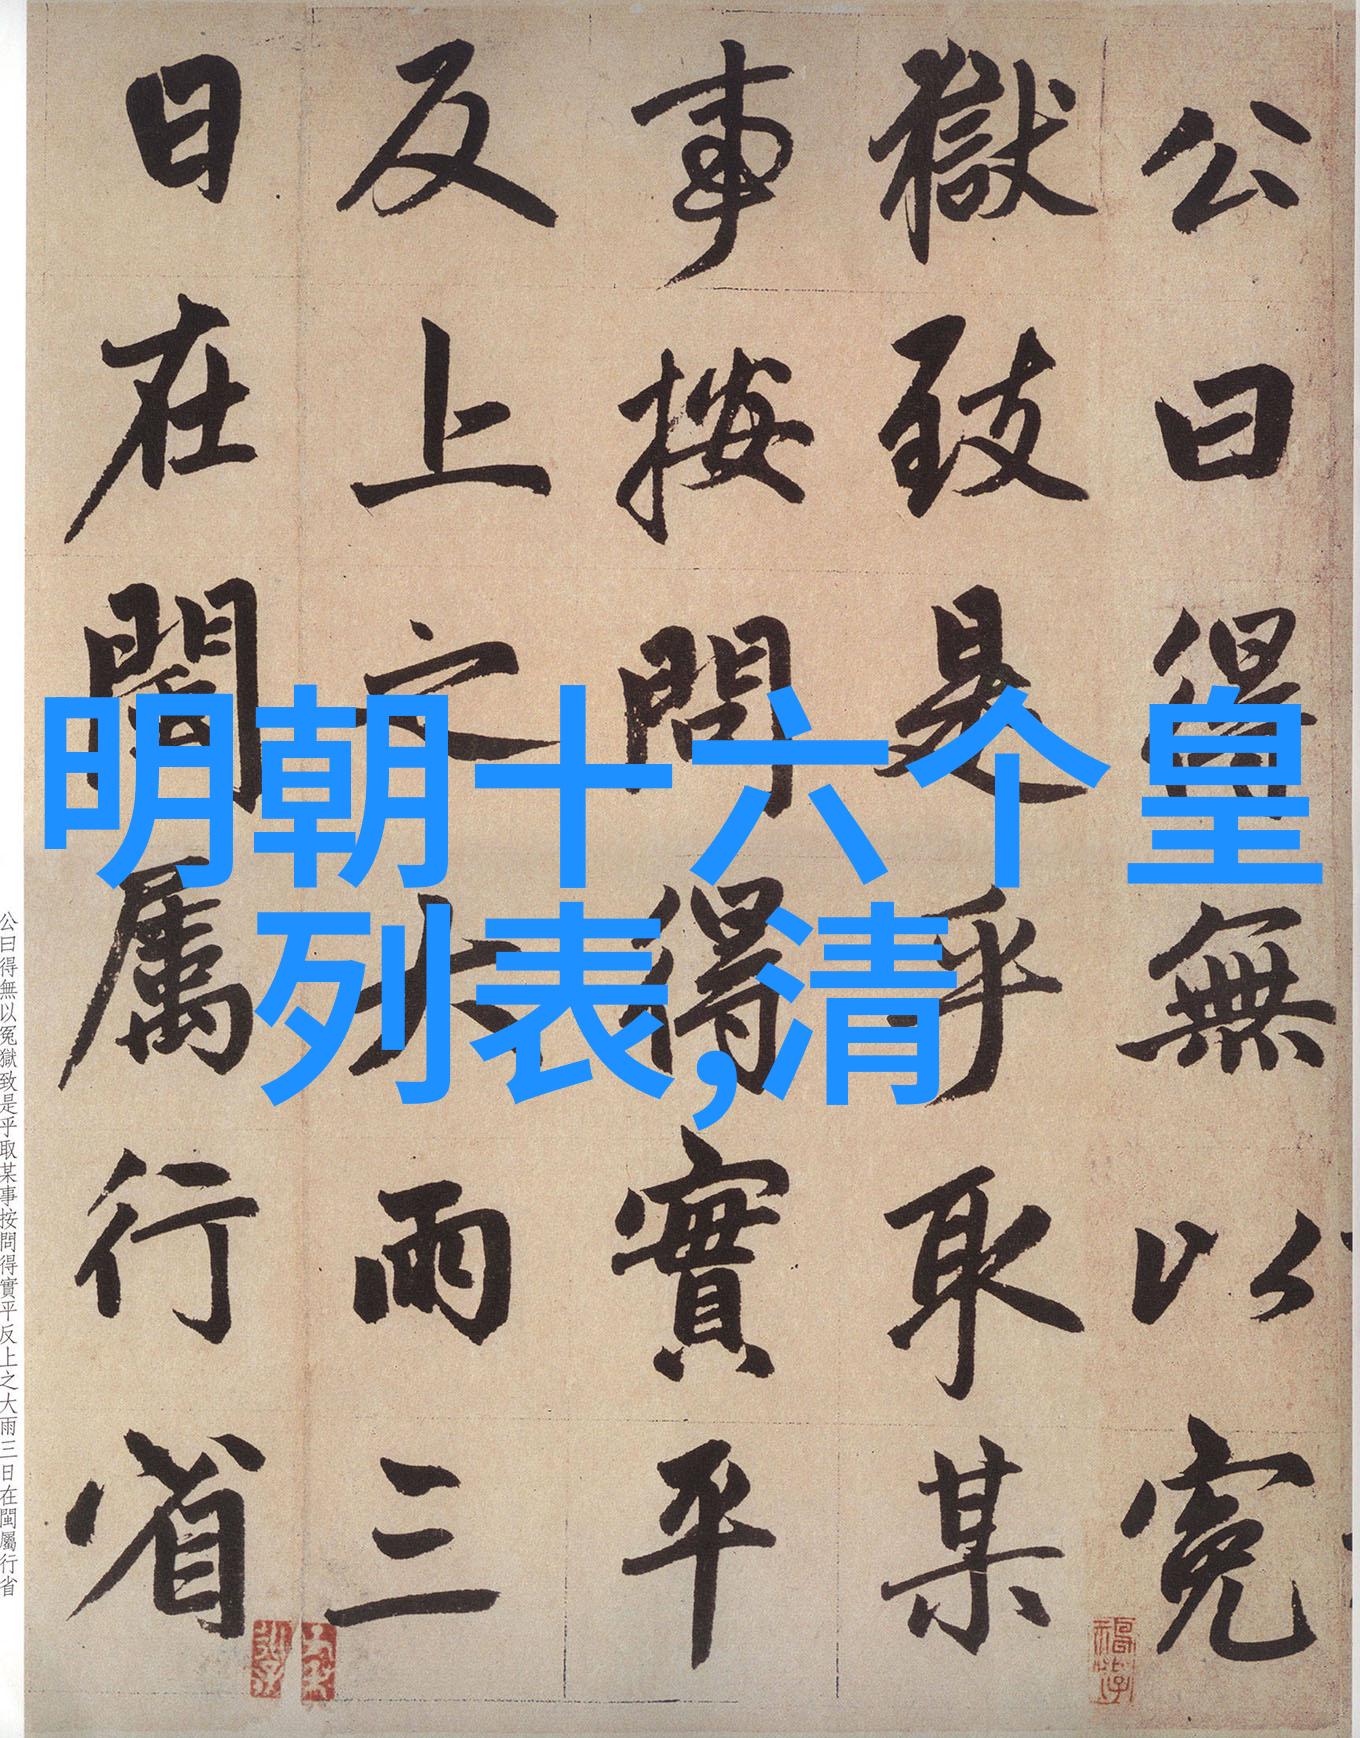 明朝十六个皇
列表,清
公曰得無以冤
獄致是乎取某
事按問得實平
反上之大雨三
日在閩屬行省
公曰得無以冤獄致是乎取某事按問得實平反上之大雨三日在閩屬行省